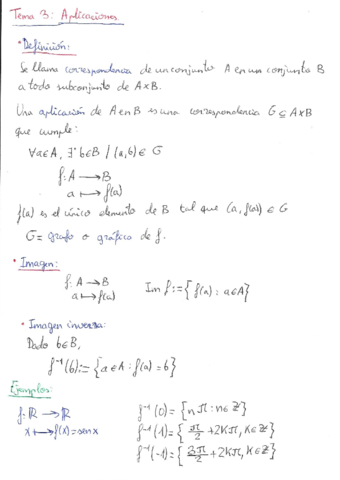 Tema 3: Aplicaciones
• Definición:
Se llama correspondencia de un conjunto A en un conjunto B
a todo subconjunto de A×B.
Una aplicación de A en B es una correspondencia G ⊆ A×B
que cumple:
∀a∈A, ∃¹ b∈B / (a,b) ∈ G
f: A → B
a ↦ f(a)
f(a) es el único elemento de B tal que (a, f(a)) ∈ G
G = grafo o gráfico de f.
• Imagen:
f: A → B
a ↦ f(a)
Im f := {f(a) : a∈A}
• Imagen inversa:
Dado b∈B,
f⁻¹(b) := {a∈A : f(a) = b}
Ejemplos:
f: ℝ → ℝ
x ↦ f(x) = sen x
f⁻¹(0) = {nπ : n∈ℤ}
f⁻¹(1) = {π/2 + 2kπ, k∈ℤ}
f⁻¹(-1) = {3π/2 + 2kπ, k∈ℤ}